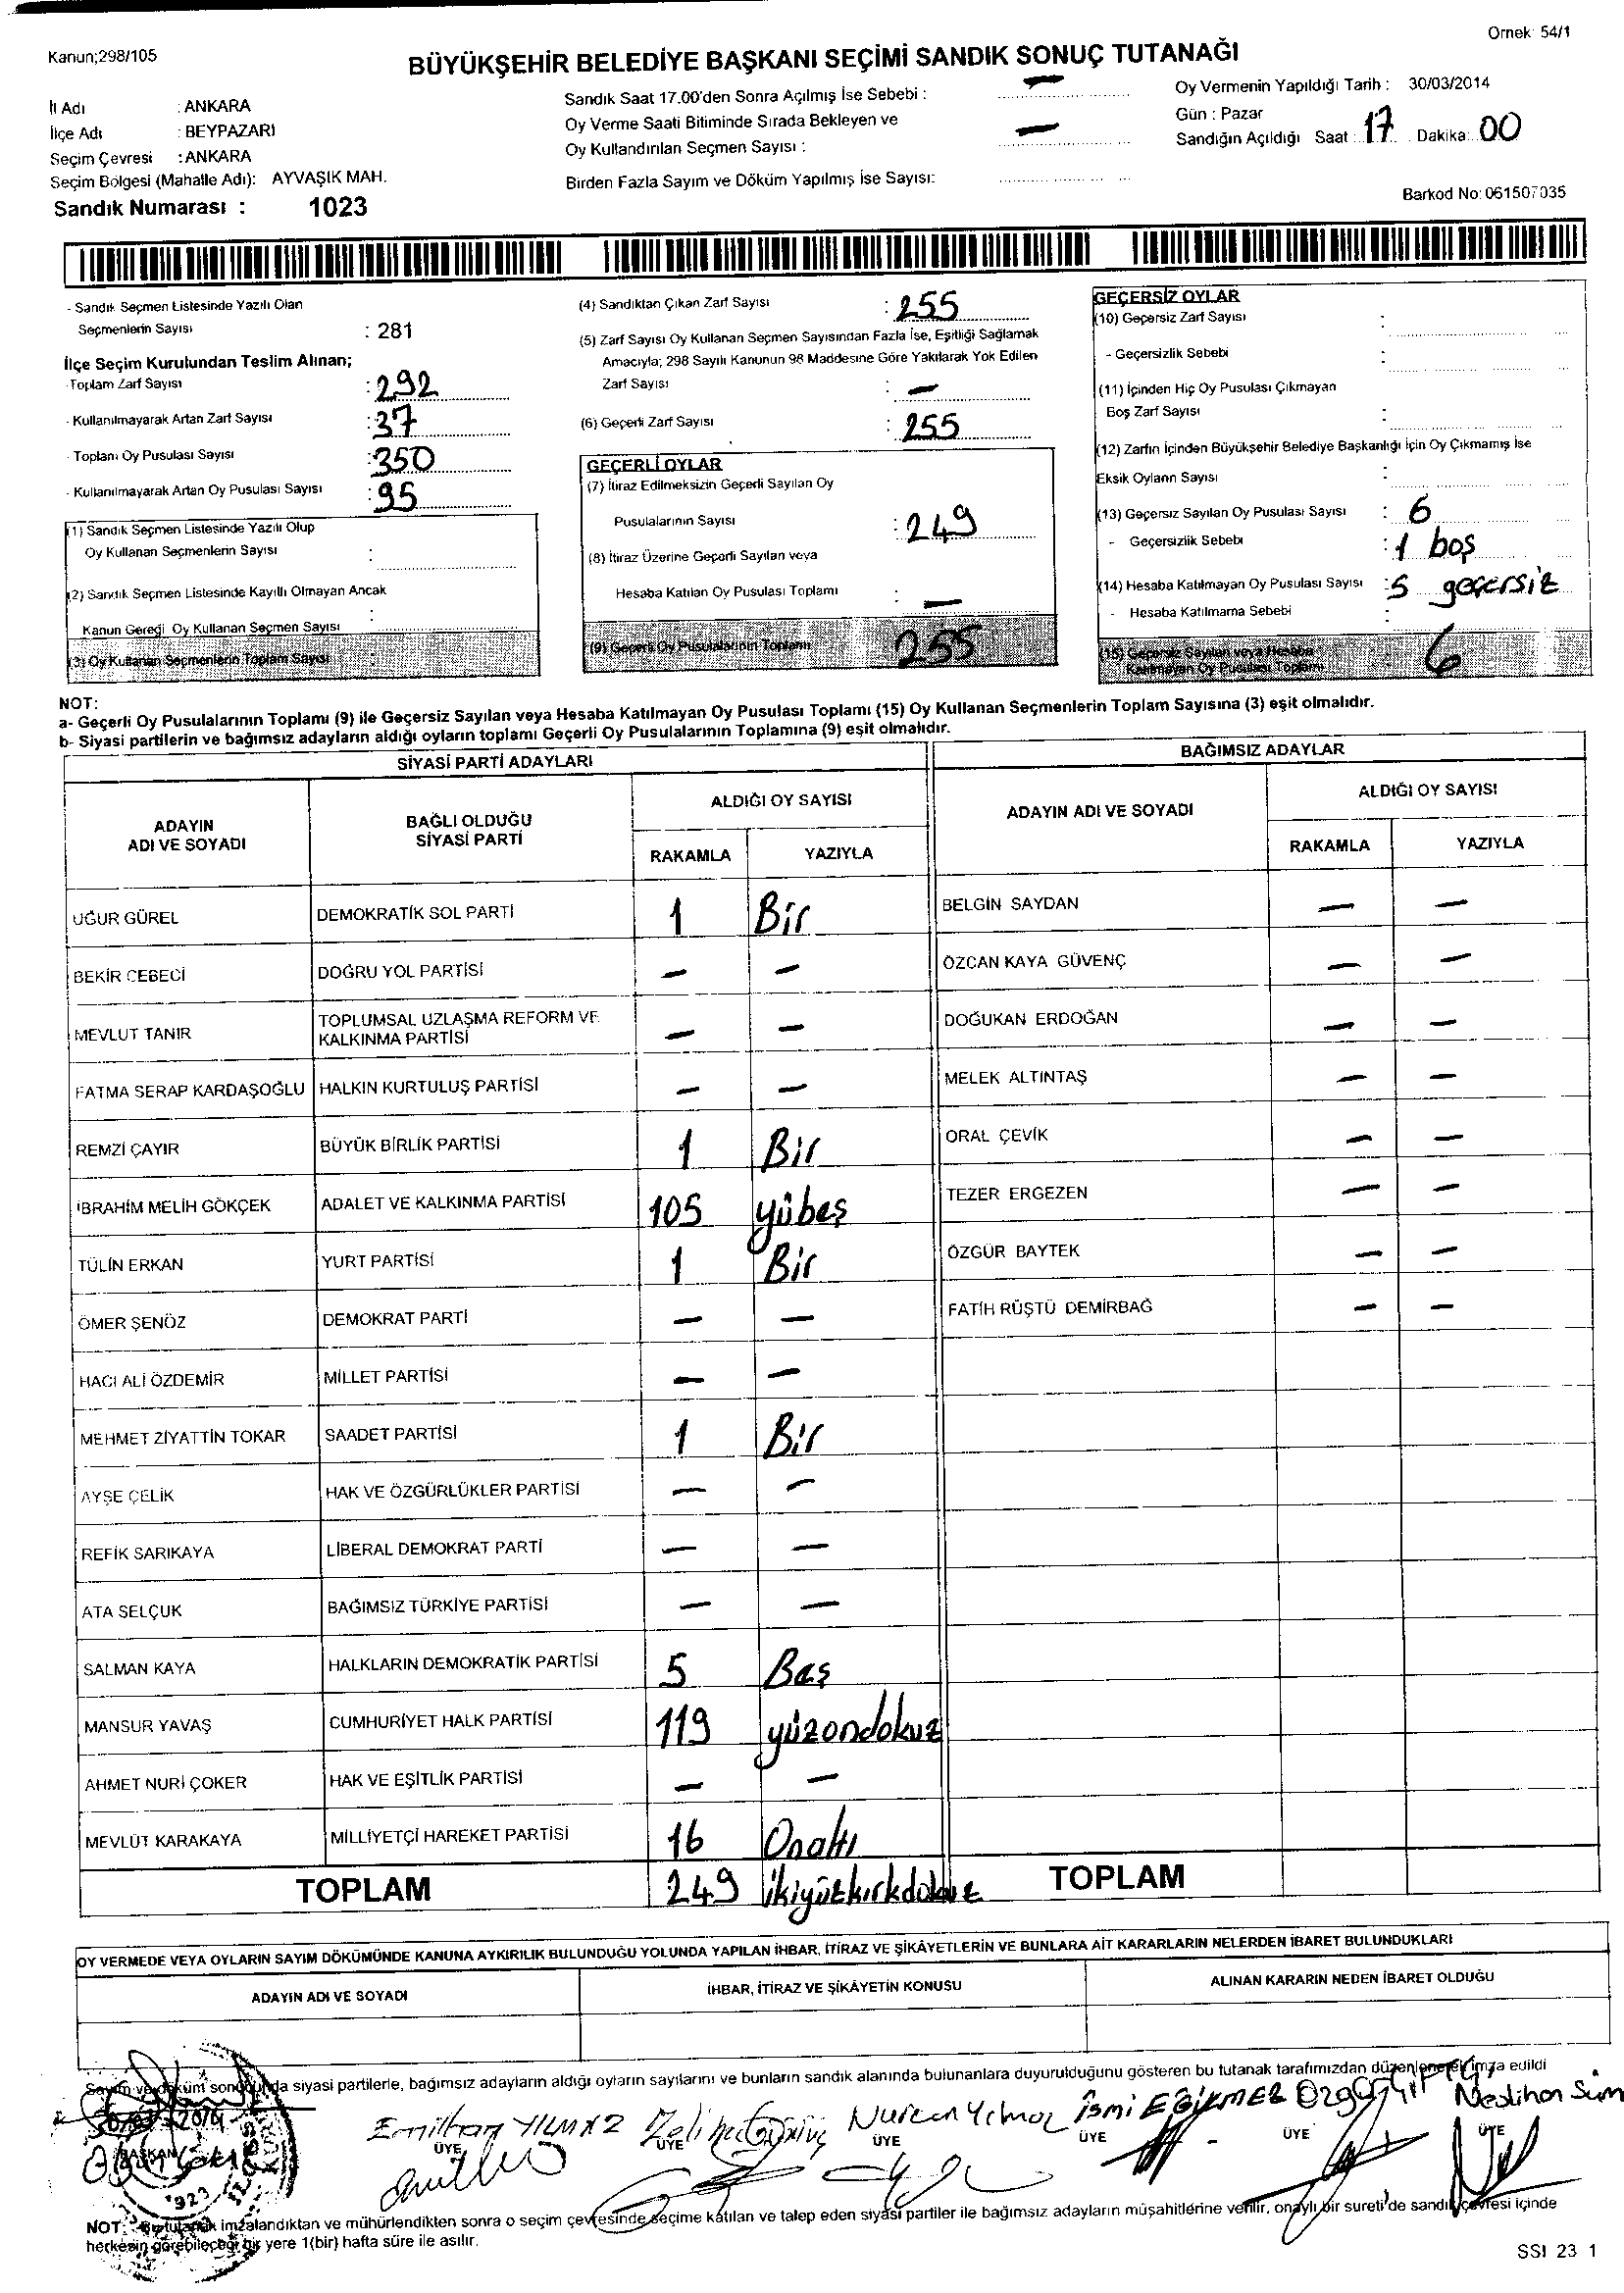 Kanun;298/105
Örnek: 54/1
BÜYÜKŞEHİR BELEDİYE BAŞKANI SEÇİMİ SANDIK SONUÇ TUTANAĞI
İl Adı : ANKARA
İlçe Adı : BEYPAZARI
Seçim Çevresi : ANKARA
Seçim Bölgesi (Mahalle Adı): AYVAŞIK MAH.
Sandık Numarası : 1023
Sandık Saat 17.00'den Sonra Açılmış İse Sebebi : —
Oy Verme Saati Bitiminde Sırada Bekleyen ve
Oy Kullandırılan Seçmen Sayısı : —
Birden Fazla Sayım ve Döküm Yapılmış İse Sayısı:
Oy Vermenin Yapıldığı Tarih : 30/03/2014
Gün : Pazar
Sandığın Açıldığı Saat : 17 Dakika: 00
Barkod No: 061507035
- Sandık Seçmen Listesinde Yazılı Olan
Seçmenlerin Sayısı : 281
İlçe Seçim Kurulundan Teslim Alınan;
-Toplam Zarf Sayısı : 292
- Kullanılmayarak Artan Zarf Sayısı : 37
- Toplam Oy Pusulası Sayısı : 350
- Kullanılmayarak Artan Oy Pusulası Sayısı : 95
(1) Sandık Seçmen Listesinde Yazılı Olup
Oy Kullanan Seçmenlerin Sayısı :
(2) Sandık Seçmen Listesinde Kayıtlı Olmayan Ancak
Kanun Gereği Oy Kullanan Seçmen Sayısı :
(3) Oy Kullanan Seçmenlerin Toplam Sayısı :
(4) Sandıktan Çıkan Zarf Sayısı : 255
(5) Zarf Sayısı Oy Kullanan Seçmen Sayısından Fazla İse, Eşitliği Sağlamak
Amacıyla; 298 Sayılı Kanunun 98 Maddesine Göre Yakılarak Yok Edilen
Zarf Sayısı : —
(6) Geçerli Zarf Sayısı : 255
GEÇERLİ OYLAR
(7) İtiraz Edilmeksizin Geçerli Sayılan Oy
Pusulalarının Sayısı : 249
(8) İtiraz Üzerine Geçerli Sayılan veya
Hesaba Katılan Oy Pusulası Toplamı : —
(9) Geçerli Oy Pusulalarının Toplamı 255
GEÇERSİZ OYLAR
(10) Geçersiz Zarf Sayısı :
- Geçersizlik Sebebi :
(11) İçinden Hiç Oy Pusulası Çıkmayan
Boş Zarf Sayısı :
(12) Zarfın İçinden Büyükşehir Belediye Başkanlığı İçin Oy Çıkmamış İse
Eksik Oyların Sayısı :
(13) Geçersiz Sayılan Oy Pusulası Sayısı : 6
- Geçersizlik Sebebi : 1 boş
(14) Hesaba Katılmayan Oy Pusulası Sayısı : 5 geçersiz
- Hesaba Katılmama Sebebi :
(15) Geçersiz Sayılan veya Hesaba
Katılmayan Oy Pusulası Toplamı : 6
NOT:
a- Geçerli Oy Pusulalarının Toplamı (9) ile Geçersiz Sayılan veya Hesaba Katılmayan Oy Pusulası Toplamı (15) Oy Kullanan Seçmenlerin Toplam Sayısına (3) eşit olmalıdır.
b- Siyasi partilerin ve bağımsız adayların aldığı oyların toplamı Geçerli Oy Pusulalarının Toplamına (9) eşit olmalıdır.
SİYASİ PARTİ ADAYLARI
ADAYIN ADI VE SOYADI BAĞLI OLDUĞU SİYASİ PARTİ ALDIĞI OY SAYISI
RAKAMLA YAZIYLA
UĞUR GÜREL DEMOKRATİK SOL PARTİ 1 Bir
BEKİR CEBECİ DOĞRU YOL PARTİSİ — —
MEVLUT TANIR TOPLUMSAL UZLAŞMA REFORM VE KALKINMA PARTİSİ — —
FATMA SERAP KARDAŞOĞLU HALKIN KURTULUŞ PARTİSİ — —
REMZİ ÇAYIR BÜYÜK BİRLİK PARTİSİ 1 Bir
İBRAHİM MELİH GÖKÇEK ADALET VE KALKINMA PARTİSİ 105 yübeş
TÜLİN ERKAN YURT PARTİSİ 1 Bir
ÖMER ŞENÖZ DEMOKRAT PARTİ — —
HACI ALİ ÖZDEMİR MİLLET PARTİSİ — —
MEHMET ZİYATTİN TOKAR SAADET PARTİSİ 1 Bir
AYŞE ÇELİK HAK VE ÖZGÜRLÜKLER PARTİSİ — —
REFİK SARIKAYA LİBERAL DEMOKRAT PARTİ — —
ATA SELÇUK BAĞIMSIZ TÜRKİYE PARTİSİ — —
SALMAN KAYA HALKLARIN DEMOKRATİK PARTİSİ 5 Beş
MANSUR YAVAŞ CUMHURİYET HALK PARTİSİ 119 yüzondokuz
AHMET NURİ ÇOKER HAK VE EŞİTLİK PARTİSİ — —
MEVLÜT KARAKAYA MİLLİYETÇİ HAREKET PARTİSİ 16 Onaltı
TOPLAM 249 ikiyüzkırkdokuz
BAĞIMSIZ ADAYLAR
ADAYIN ADI VE SOYADI ALDIĞI OY SAYISI
RAKAMLA YAZIYLA
BELGİN SAYDAN — —
ÖZCAN KAYA GÜVENÇ — —
DOĞUKAN ERDOĞAN — —
MELEK ALTINTAŞ — —
ORAL ÇEVİK — —
TEZER ERGEZEN — —
ÖZGÜR BAYTEK — —
FATİH RÜŞTÜ DEMİRBAĞ — —
TOPLAM
OY VERMEDE VEYA OYLARIN SAYIM DÖKÜMÜNDE KANUNA AYKIRILIK BULUNDUĞU YOLUNDA YAPILAN İHBAR, İTİRAZ VE ŞİKÂYETLERİN VE BUNLARA AİT KARARLARIN NELERDEN İBARET BULUNDUKLARI
ADAYIN ADI VE SOYADI İHBAR, İTİRAZ VE ŞİKÂYETİN KONUSU ALINAN KARARIN NEDEN İBARET OLDUĞU
Sayım ve döküm sonucunda siyasi partilerle, bağımsız adayların aldığı oyların sayılarını ve bunların sandık alanında bulunanlara duyurulduğunu gösteren bu tutanak tarafımızdan düzenlenerek imza edildi
Nurcan Yılmaz İsmi EĞİKMEZ Neslihan
BAŞKAN ÜYE ÜYE ÜYE ÜYE ÜYE ÜYE
NOT: Bu tutanak imzalandıktan ve mühürlendikten sonra o seçim çevresinde seçime katılan ve talep eden siyasi partiler ile bağımsız adayların müşahitlerine verilir, onaylı bir sureti de sandık çevresi içinde
herkesin görebileceği bir yere 1(bir) hafta süre ile asılır.
SSI 23 1